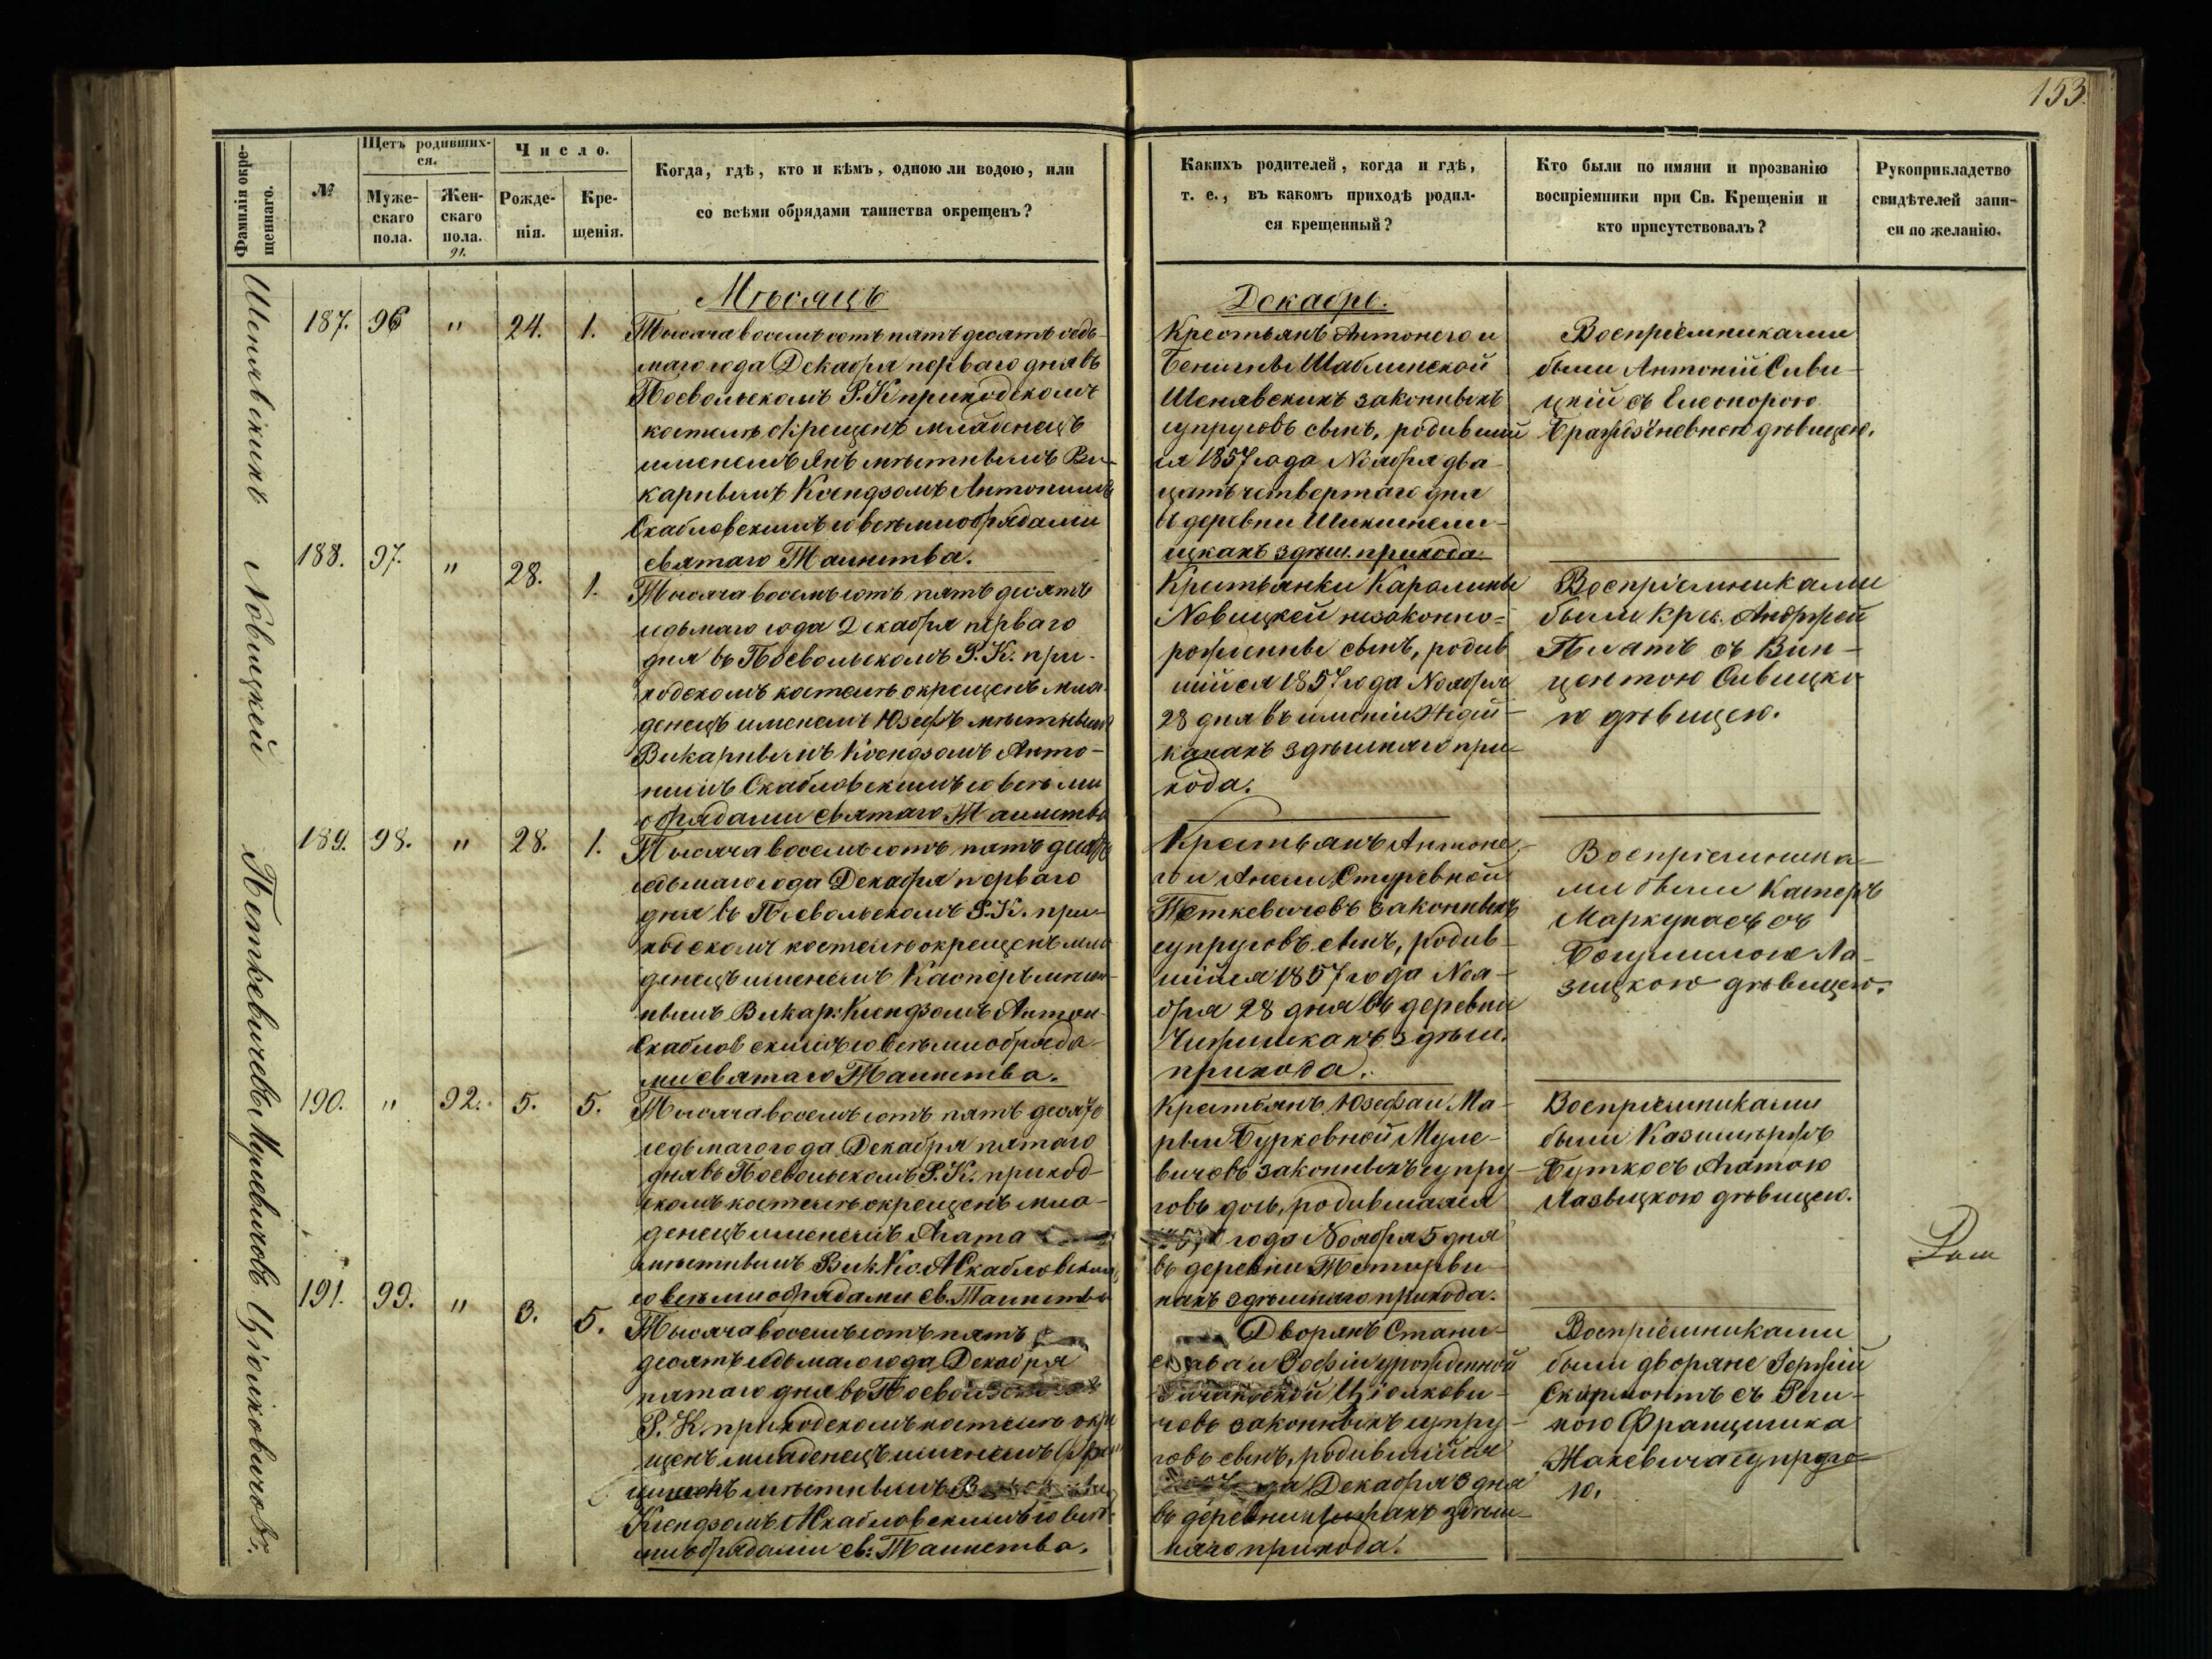 153.
Фамилія окре-
щеннаго.
№
Щетъ родивших-
ся.
Муже-
скаго
пола.
Жен-
скаго
пола.
91.
Число.
Рожде-
нія.
Кре-
щенія.
Когда, гдѣ, кто и кѣмъ, одною ли водою, или
со всѣми обрядами таинства окрещенъ?
Какихъ родителей, когда и гдѣ,
т. е., въ какомъ приходѣ родил-
ся крещенный?
Кто были по имяни и прозванію
воспріемники при Св. Крещеніи и
кто присутствовалъ?
Рукоприкладство
свидѣтелей запи-
си по желанію.
Мѣсяцъ
Декабрь.
Шенявскихъ
187. 96 " 24. 1.
Тысяча восемьсотъ пятьдесятъ седь-
маго года Декабря перваго дня въ
Посвольскомъ Р. К. приходскомъ
костелѣ окрещенъ младенецъ
именемъ Янъ мѣстнымъ Ви-
карнымъ Ксендзомъ Антонимъ
Скабловскимъ со всѣми обрядами
святаго Таинства.
Крестьянъ Антонего и
Бенигны Шаблинской
Шенявскихъ законныхъ
супруговъ сынъ, родивший
ся 1857 года Ноября два-
цать четвертаго дня
въ деревни
цкахъ здѣш. прихода.
Воспріемниками
были Антоній Сиви-
цкій съ Елеонорою
дѣвицею.
Новицкей
188. 97. " 28. 1.
Тысяча восемьсотъ пятьдесятъ
седьмаго года Декабря перваго
дня въ Посвольскомъ Р. К. при-
ходскомъ костелѣ окрещенъ мла-
денецъ именемъ Юзефъ мѣстнымъ
Викарнымъ Ксендзомъ Анто-
нимъ Скабловскимъ со всѣми
обрядами святаго Таинства
Крестьянки Каролины
Новицкей незаконно-
рожденны сынъ, родив
шийся 1857 года Ноября
28 дня въ имѣніи
канахъ здѣшняго при-
хода.
Воспріемниками
были Кре. Андржей
съ Вин-
центою Сивицко
ю дѣвицею.
Петкевичовъ
189. 98. " 28. 1.
Тысяча восемьсотъ пятьдесятъ
седьмаго года Декабря перваго
дня въ Посвольскомъ Р. К. при-
ходскомъ костелѣ окрещенъ мла-
денецъ именемъ Касперъ мѣст-
нымъ Викар: Ксендзомъ Антон-
Скабловскимъ со всѣми обряда-
ми святаго Таинства.
Крестьянъ Антоне-
го и Анели Стуревной
Петкевичовъ законныхъ
супруговъ сынъ, родив-
шийся 1857 года Ноя-
бря 28 дня въ деревни
здѣш.
прихода.
Воспріемника-
ми были Касперъ
Маркунасъ съ
Богумилою Ла-
зицкою дѣвицею.
Мулевичовъ
190. " 92. 5. 5.
Тысяча восемьсотъ пятьдесято
седьмаго года Декабря пятаго
дня въ Посвольскомъ Р. К. приход-
скомъ костелѣ окрещенъ мла-
денецъ именемъ Агата
мѣстнымъ Вик. Кс. А Скабловскимъ
со всѣми обрядами св. Таинства
Крестьянъ Юзефа и Ма-
рыи Бурковной Муле-
вичовъ законныхъ супру-
говъ дочь, родившаяся
года Ноября 5 дня
въ деревни
нахъ здѣшняго прихода.
Воспріемниками
были Казимержъ
Буткосъ Агатою
Лазвицкою дѣвицею.
Цѣолковичовъ.
191. 99. " 3. 5.
Тысяча восемьсотъ пять
десятъ седьмаго года Декабря
пятаго дня въ
Р. К. приходскомъ костелѣ окре
щенъ младенецъ именемъ
мѣстнымъ
Ксендзомъ А Скабловскимъ со всѣ-
ми обрядами св: Таинства.
Дворянъ Стани-
слава и Зофіи урожденной
Цѣолкови-
човъ законныхъ супру-
говъ сынъ, родившийся
года Декабря 3 дня
въ деревни здѣш-
няго прихода.
Воспріемниками
были дворяне
Скирмонтъ съ Реги-
ною Францишка
Жакевича супруго
ю.